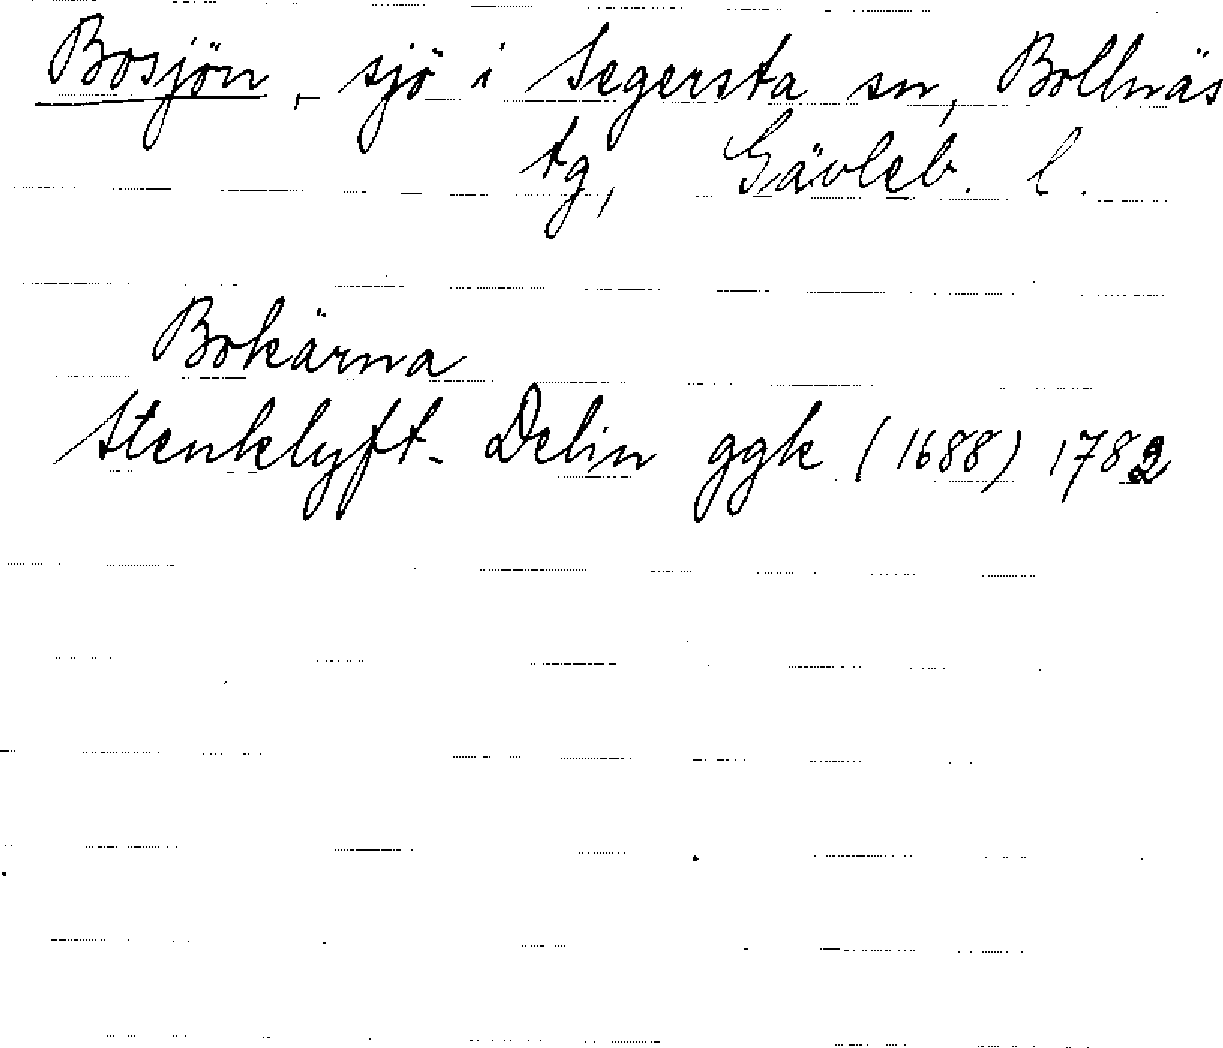 Bosjön, sjö i Segersta sn, Bollnäs
tg, Gävleb. l.
Bokärna
Stenklyft- Delin ggk (1688) 1782